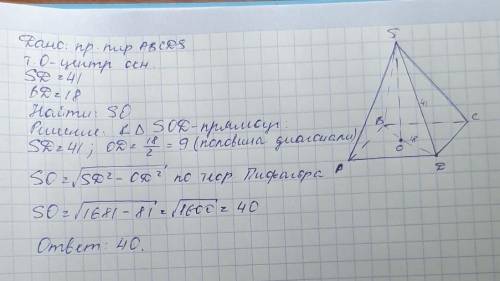 Дано: пр. пир ABCDS
т. O-центр осн.
SD = 41
BD = 18
Найти: SO
Решение: △ SOD-прямоуг.
SD = 41; OD = 18/2 = 9 (половина диагонали)
SO = √SD² - OD² по теор. Пифагора
SO = √1681 - 81 = √1600 = 40
Ответ: 40.
S
41
B
C
O
18
A
D